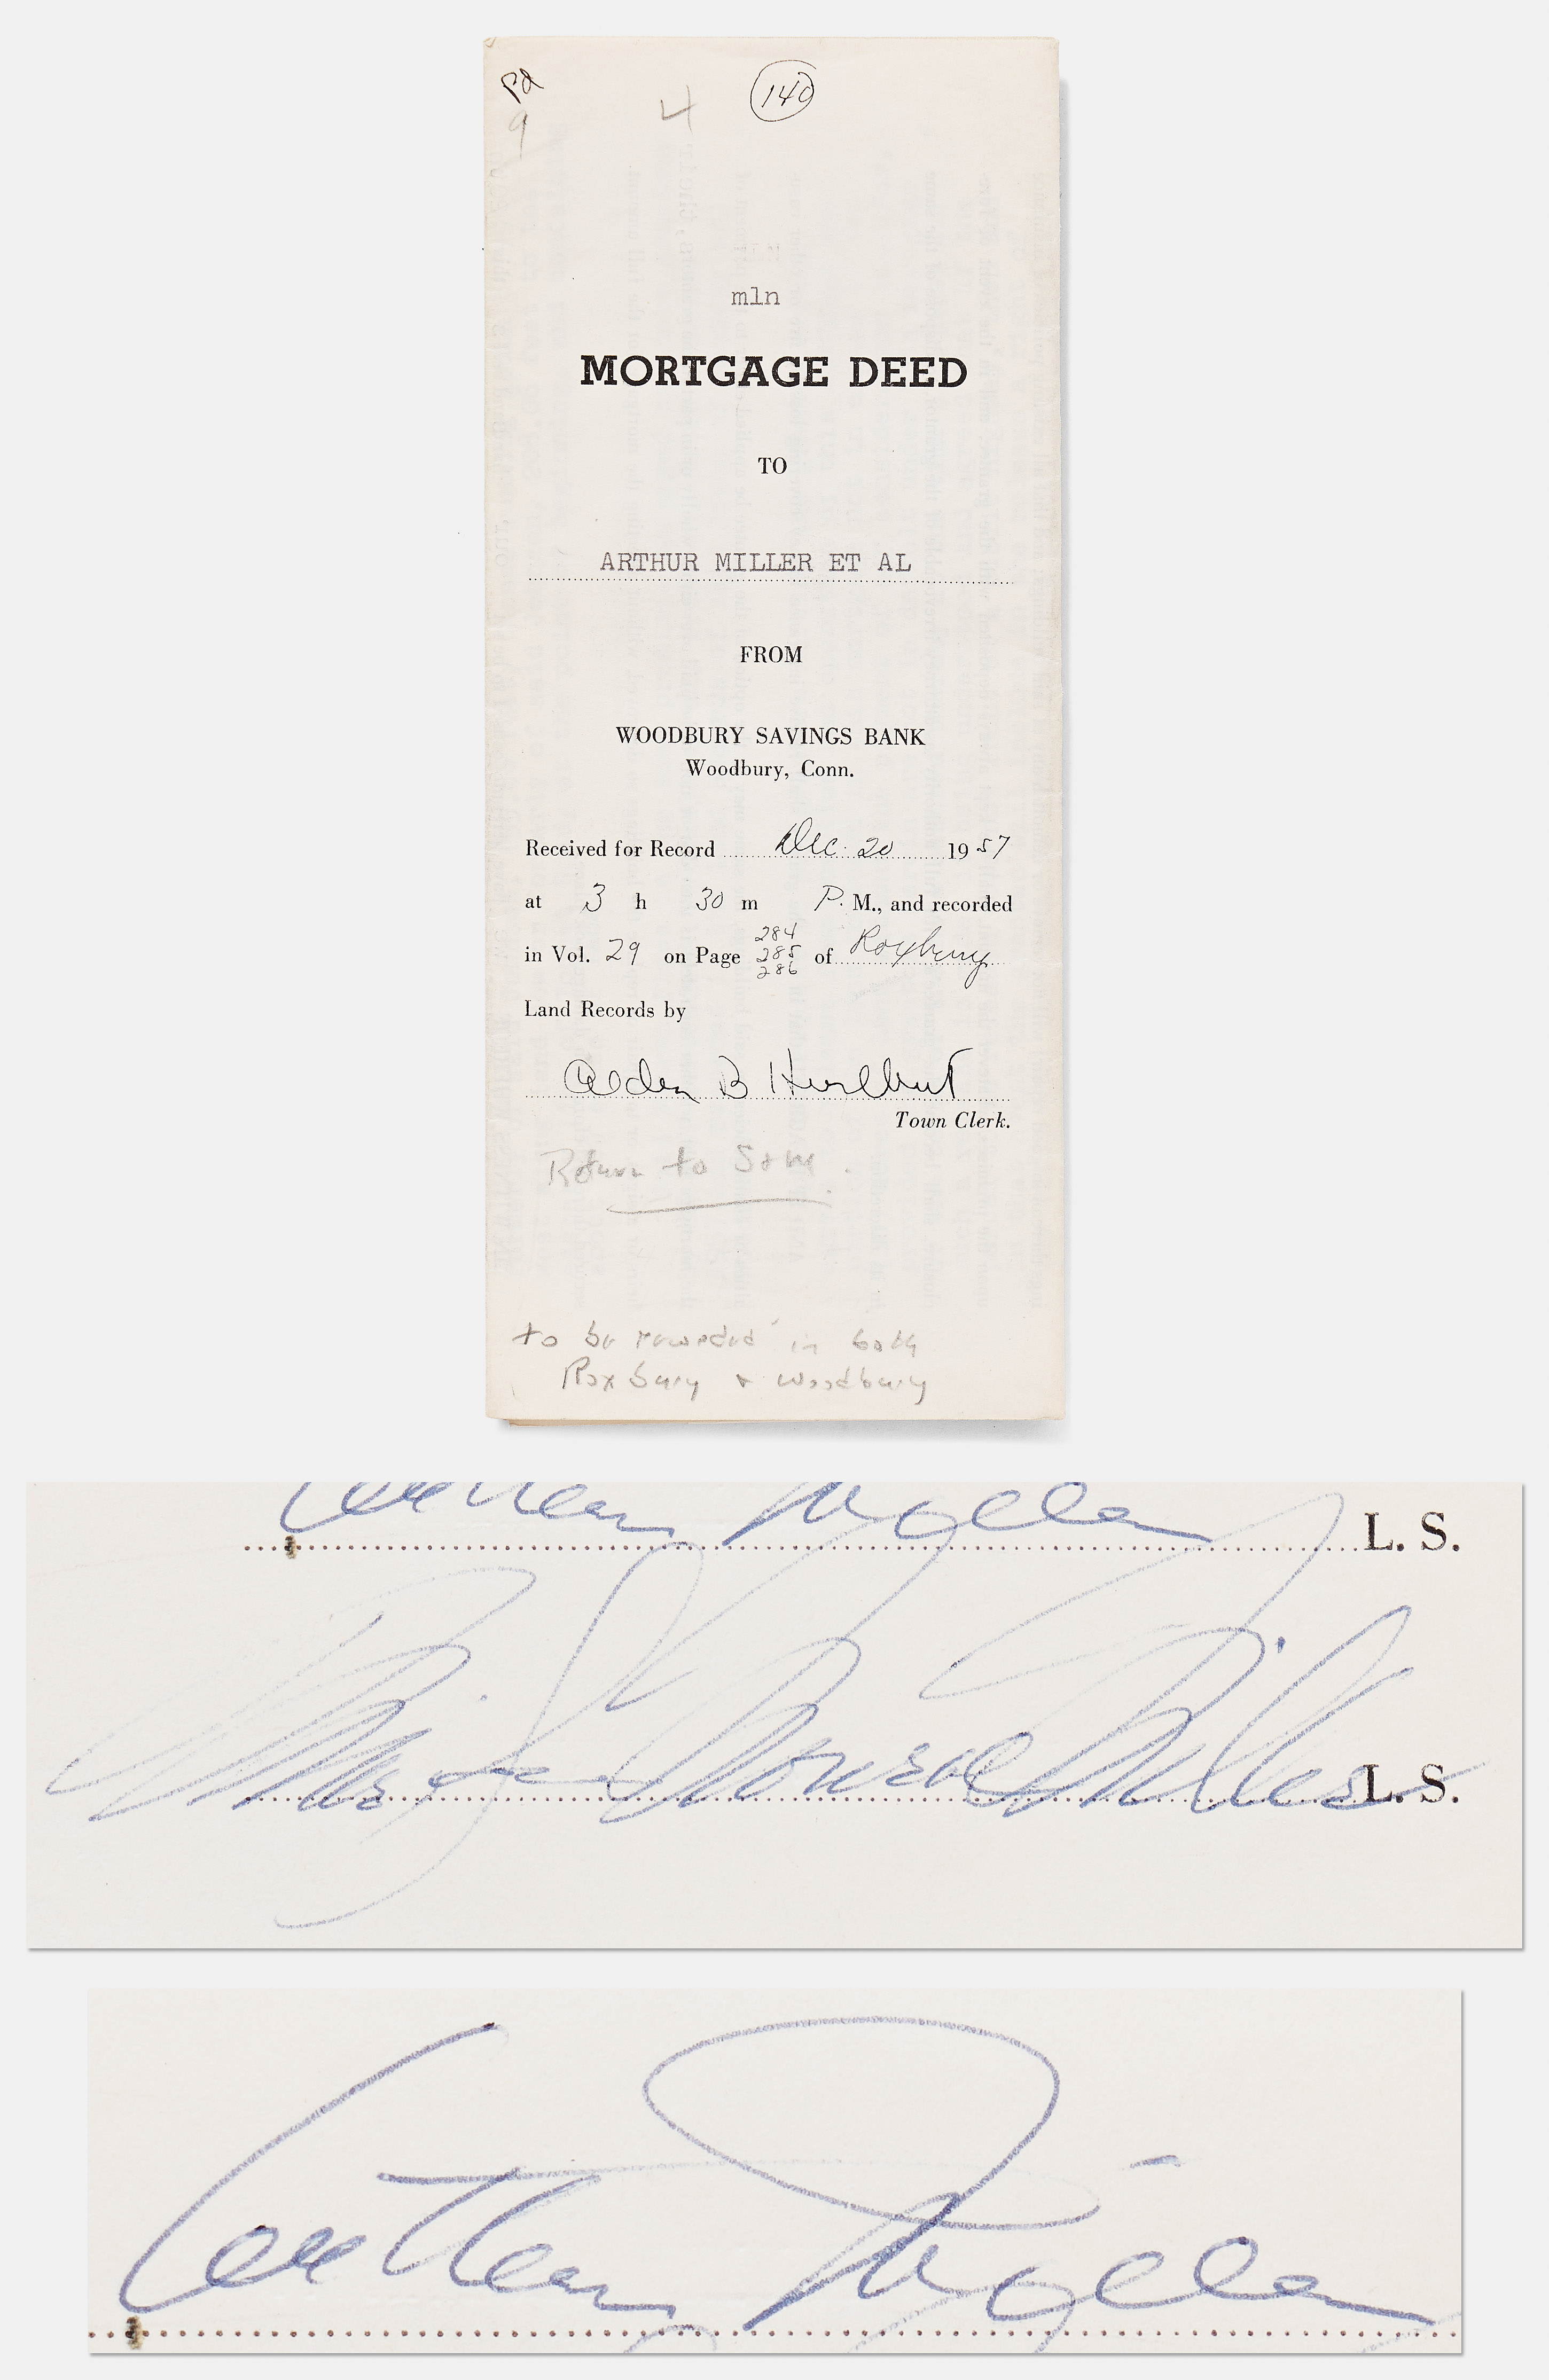 Pd
9
4
140
mln
MORTGAGE DEED
TO
ARTHUR MILLER ET AL
FROM
WOODBURY SAVINGS BANK
Woodbury, Conn.
Received for Record Dec. 20 1957
at 3 h 30 m P. M., and recorded
284
in Vol. 29 on Page 285 of Roxbury
286
Land Records by
Alden B Hurlbut
Town Clerk.
Return to
to be recorded in both
Roxbury + Woodbury
Arthur Miller L. S.
Marilyn Monroe Miller L. S.
Arthur Miller